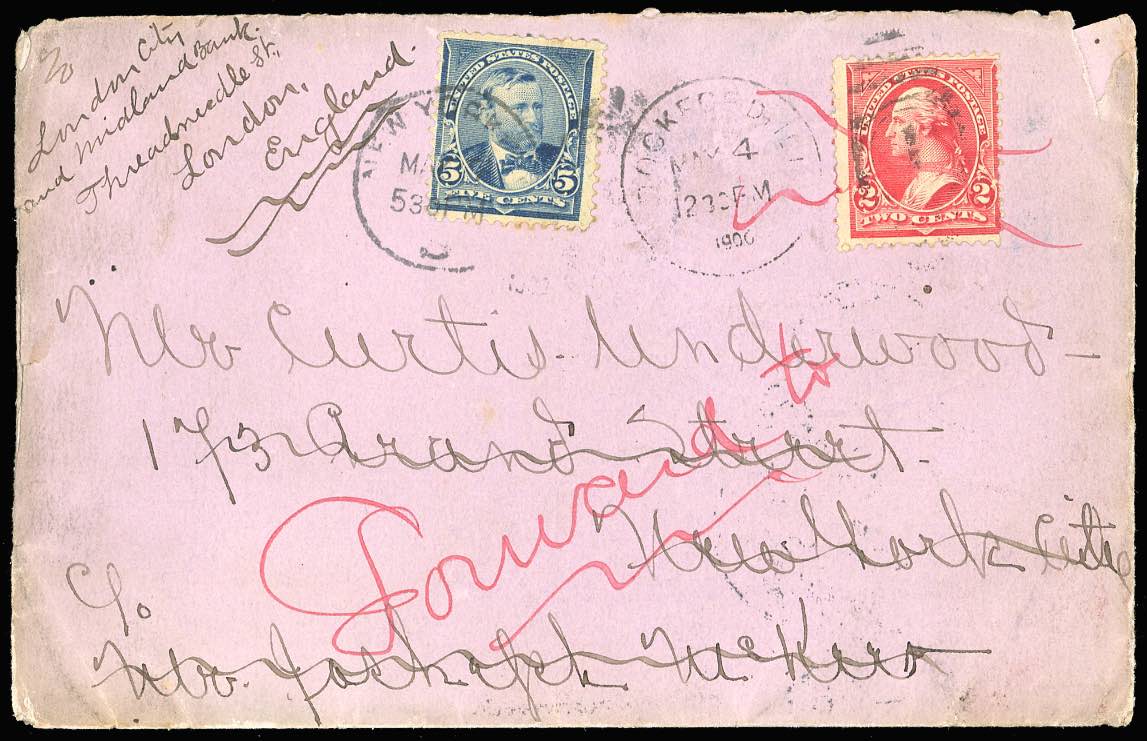 To
London City
and Midland Bank.
Threadneedle St.,
London,
England.
UNITED STATES POSTAGE
5 5
FIVE CENTS
NEW YORK
MA
530PM
MAY 4
1230PM
1900
UNITED STATES POSTAGE
2 2
TWO CENTS
Mr Curtis Underwood -
173 Grand Street
New York City
Forward to
C/o
Mr. Joshaph McKee